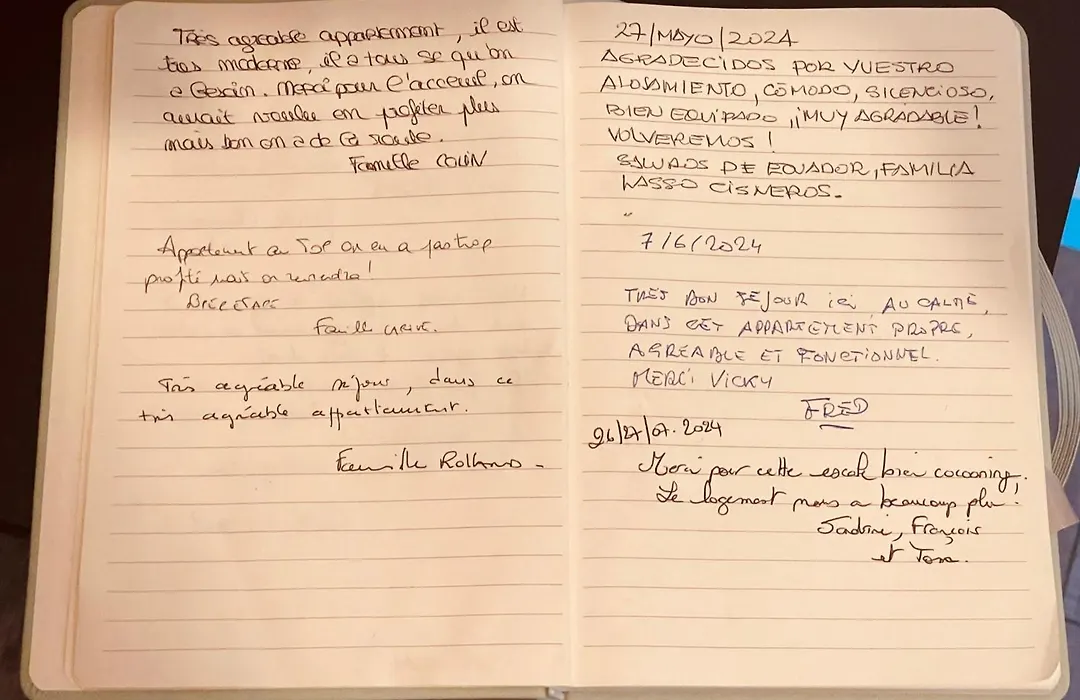 Très agréable appartement, il est
très moderne, il a tous se qu'on
a besoin. Merci pour l'acceuil, on
aurait voulu en profiter plus
mais bon on a de la route.
Famille COLIN
Appartement au TOP on en a pas trop
profité mais on reviendra!
Famille
Très agréable séjour, dans ce
très agréable appartement.
Famille Rolland -
27/MAYO/2024
AGRADECIDOS POR VUESTRO
ALOJAMIENTO, CÓMODO, SILENCIOSO,
BIEN EQUIPADO ¡¡MUY AGRADABLE!
VOLVEREMOS!
SALUDOS DE ECUADOR, FAMILIA
LASSO CISNEROS.
7/6/2024
TRES BON SEJOUR ici, AU CALME,
DANS CET APPARTEMENT PROPRE,
AGREABLE ET FONCTIONNEL.
MERCI VICKY
FRED
26/27/07.2024
Merci pour cette escale bien cocooning.
Le logement nous a beaucoup plu!
Sadrine, François
et Tom.